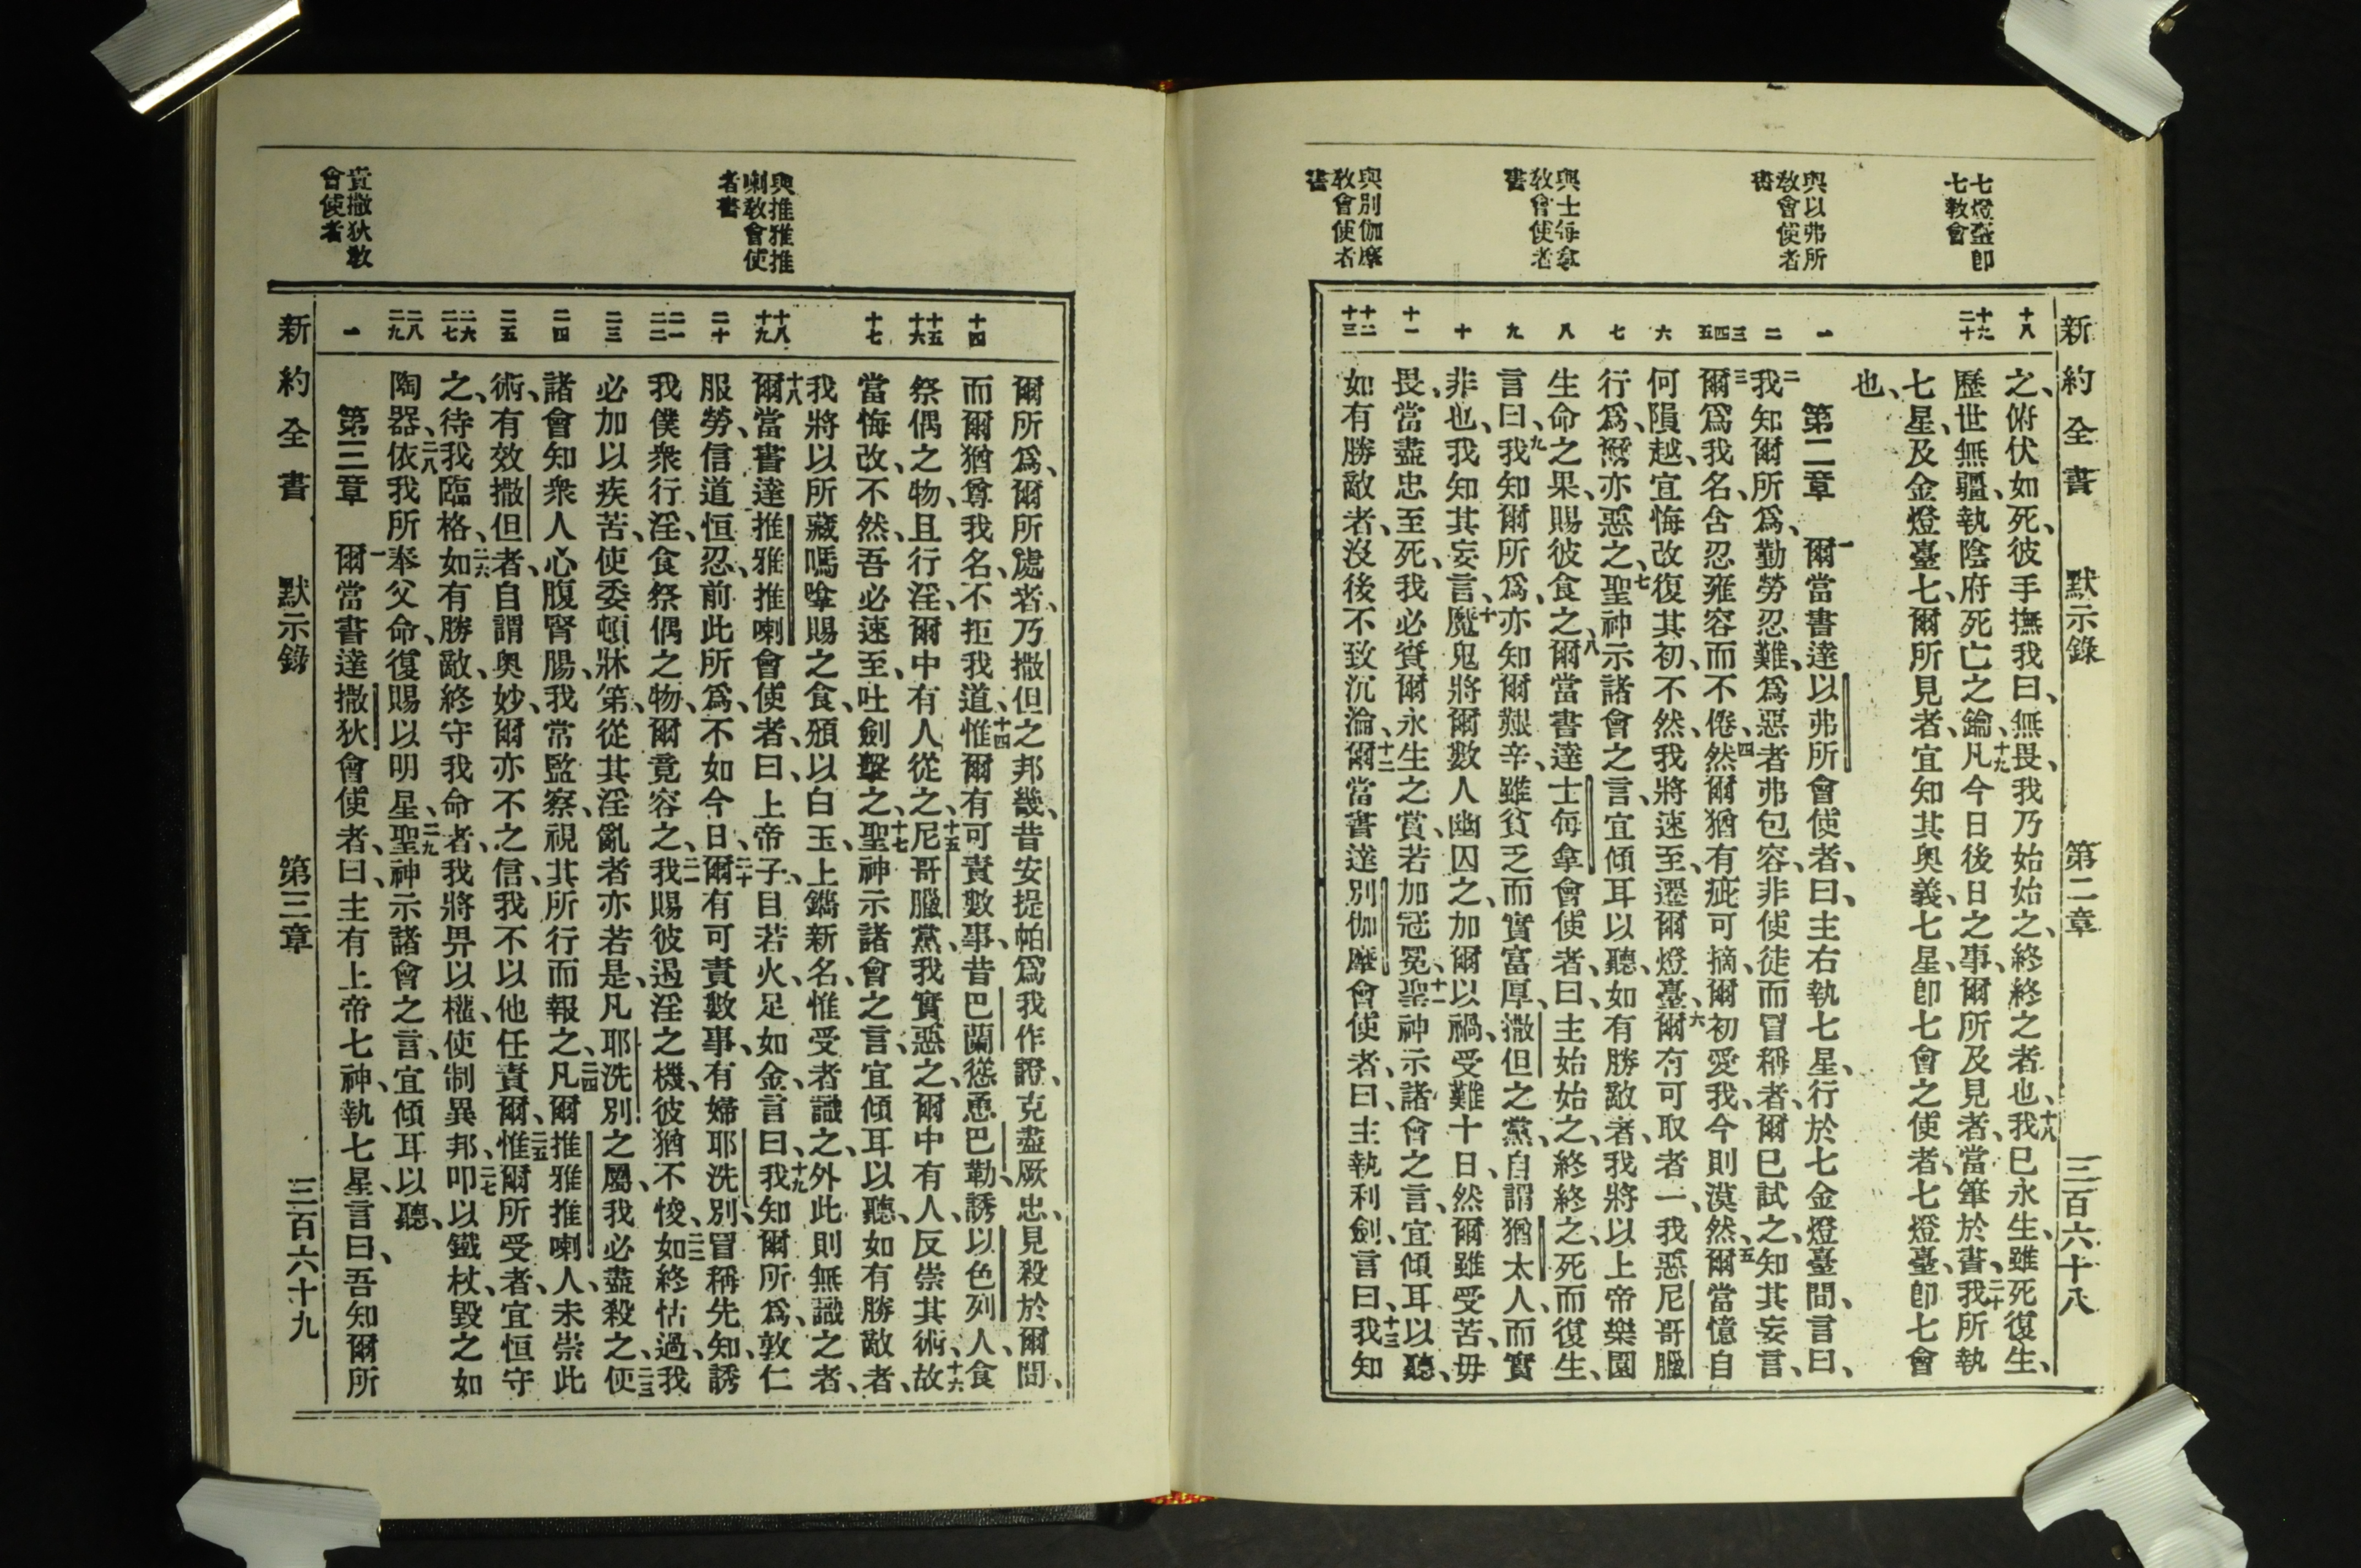 七燈臺卽
七教會
與以弗所
教會使者
書
與士每拿
教會使者
書
與別伽摩
教會使者
書
新約全書 默示錄 第二章 三百六十八
十八
十九
二十
一
二
三
四
五
六
七
八
九
十
十一
十二
十三
之、俯伏如死、彼手撫我曰、無畏、我乃始始之、終終之者也、十八我已永生、雖死復生、
歷世無疆、執陰府死亡之鑰、十九凡今日後日之事、爾所及見者、當筆於書、二十我所執
七星、及金燈臺七、爾所見者、宜知其奧義、七星、卽七會之使者、七燈臺、卽七會
也、
第二章 一爾當書達以弗所會使者、曰、主右執七星、行於七金燈臺間、言曰、
二我知爾所爲、勤勞忍難、爲惡者弗包容、非使徒而冒稱者、爾已試之、知其妄言、
三爾爲我名、含忍雍容而不倦、四然爾猶有疵可摘、爾初愛我、今則漠然、五爾當憶自
何隕越、宜悔改復其初、不然、我將速至、遷爾燈臺、六爾有可取者一、我惡尼哥臘
行爲、爾亦惡之、七聖神示諸會之言、宜傾耳以聽、如有勝敵者、我將以上帝樂園
生命之果、賜彼食之、八爾當書達士每拿會使者、曰、主始始之、終終之、死而復生、
言曰、九我知爾所爲、亦知爾艱辛、雖貧乏而實富厚、撒但之黨、自謂猶太人、而實
非也、我知其妄言、十魔鬼將爾數人幽囚之、加爾以禍、受難十日、然爾雖受苦、毋
畏、當盡忠至死、我必賚爾永生之賞、若加冠冕、十一聖神示諸會之言、宜傾耳以聽、
如有勝敵者、沒後不致沉淪、十二爾當書達別伽摩會使者、曰、主執利劍、言曰、十三我知
與推雅推
喇教會使
者書
責撒狄教
會使者
十四
十五
十六
十七
十八
十九
二十
二一
二二
二三
二四
二五
二六
二七
二八
二九
一
爾所爲、爾所處者、乃撒但之邦畿、昔安提帕爲我作證、克盡厥忠、見殺於爾間、
而爾猶尊我名、不拒我道、十四惟爾有可責數事、昔巴蘭慫恿巴勒、誘以色列人、食
祭偶之物、且行淫、爾中有人從之、十五尼哥臘黨、我實惡之、爾中有人、反崇其術、十六故
當悔改、不然、吾必速至、吐劍擊之、十七聖神示諸會之言、宜傾耳以聽、如有勝敵者、
我將以所藏嗎嗱賜之食、頒以白玉、上鐫新名、惟受者識之、外此則無識之者、
十八爾當書達推雅推喇會使者、曰、上帝子、目若火、足如金、言曰、十九我知爾所爲、敦仁
服勞、信道恒忍、前此所爲、不如今日、二十爾有可責數事、有婦耶洗別、冒稱先知、誘
我僕衆行淫、食祭偶之物、爾竟容之、二一我賜彼過淫之機、彼猶不悛、二二如終怙過、我
必加以疾苦、使委頓牀笫、從其淫亂者亦若是、凡耶洗別之屬、我必盡殺之、二三使
諸會知衆人心腹腎腸、我常監察、視其所行而報之、二四凡爾推雅推喇人、未崇此
術、有效撒但者、自謂奧妙、爾亦不之信、我不以他任責爾、二五惟爾所受者、宜恒守
之、待我臨格、二六如有勝敵、終守我命者、我將畀以權、使制異邦、二七叩以鐵杖、毀之如
陶器、二八依我所奉父命、復賜以明星、二九聖神示諸會之言、宜傾耳以聽、
第三章 一爾當書達撒狄會使者、曰、主有上帝七神、執七星、言曰、吾知爾所
新約全書 默示錄 第三章 三百六十九